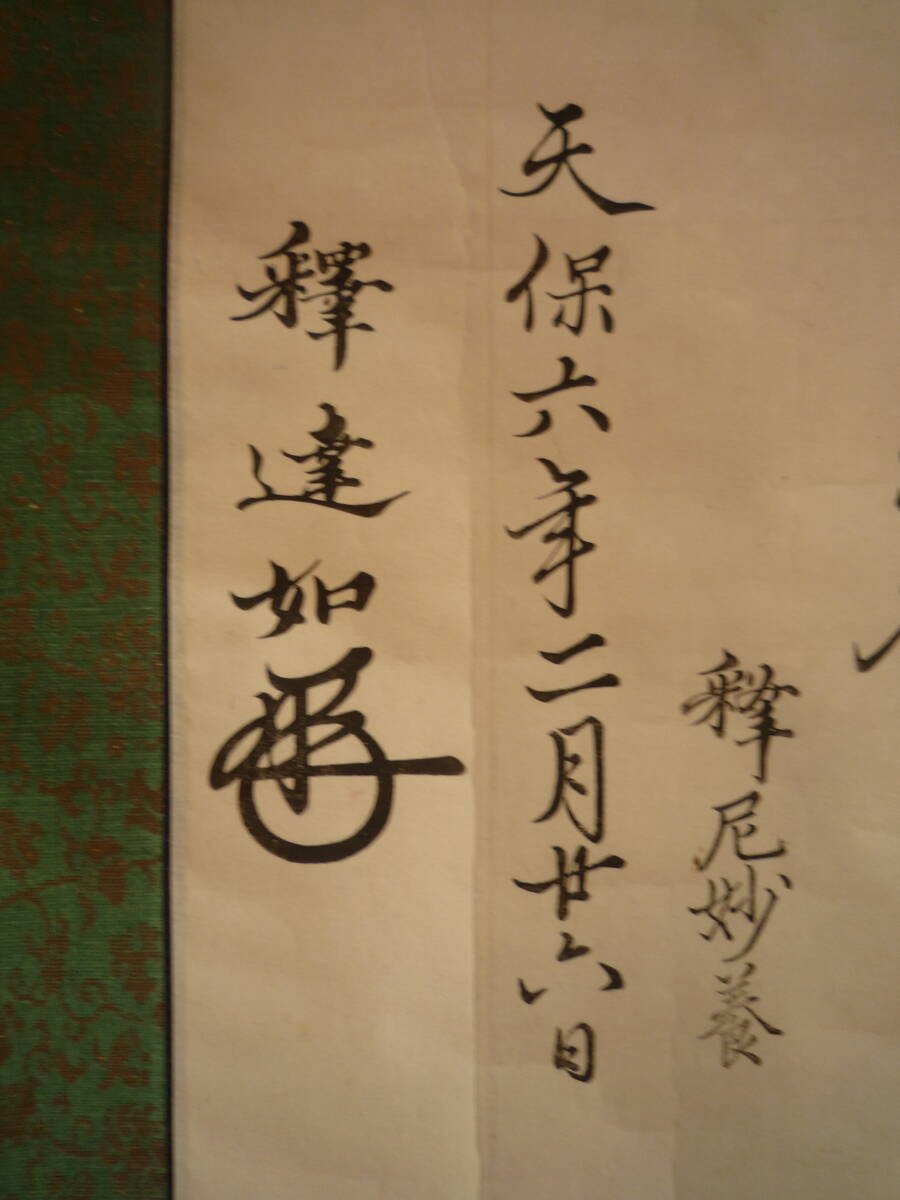 釋尼妙養
天保六年二月廿六日
釋達如